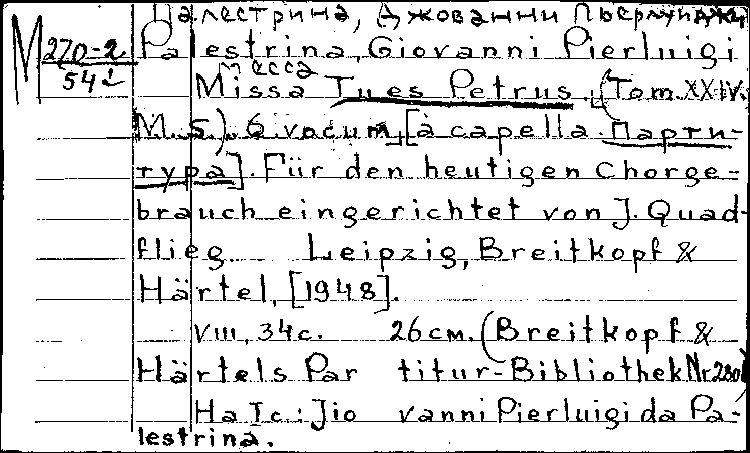 Палестрина, Джованни Пьерлуиджи
М 270-2
54
Palestrina, Giovanni Pierluigi
Месса
Missa Tu es Petrus. (Tom. XXIV.
M. 5). 6 vocum, [à capella. Парти-
тура]. Für den heutigen Chorge-
brauch eingerichtet von J. Quad-
flieg. Leipzig, Breitkopf &
Härtel, [1948].
VIII, 34 с. 26 см. (Breitkopf &
Härtels Partitur-Bibliothek Nr 280)
На Тс.: Jiovanni Pierluigi da Pa-
lestrina.